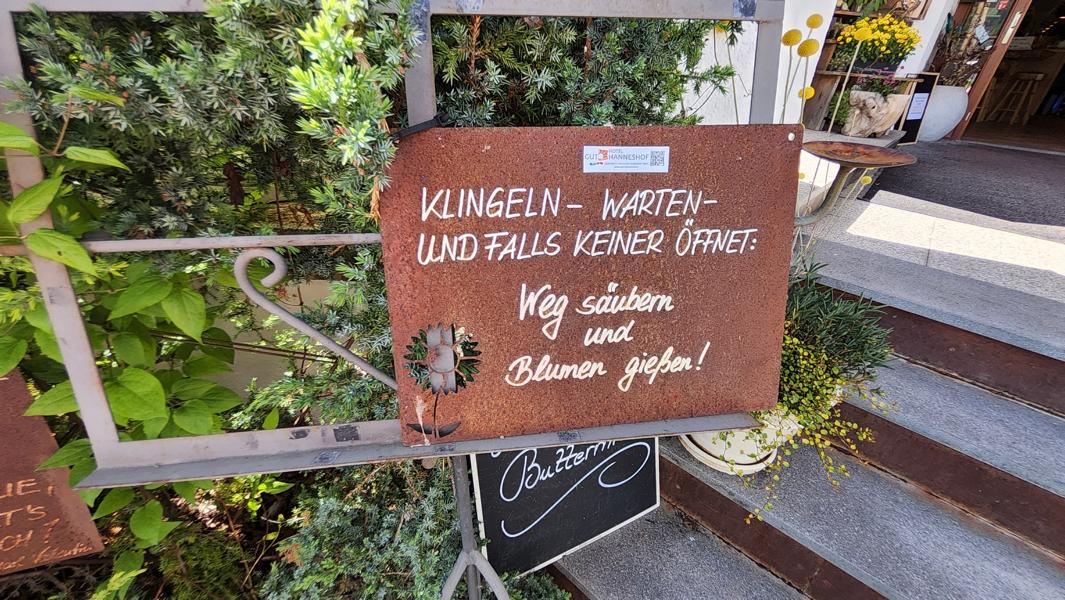 HOTEL
GUT HANNESHOF
KLINGELN – WARTEN –
UND FALLS KEINER ÖFFNET:
Weg säubern
und
Blumen gießen!